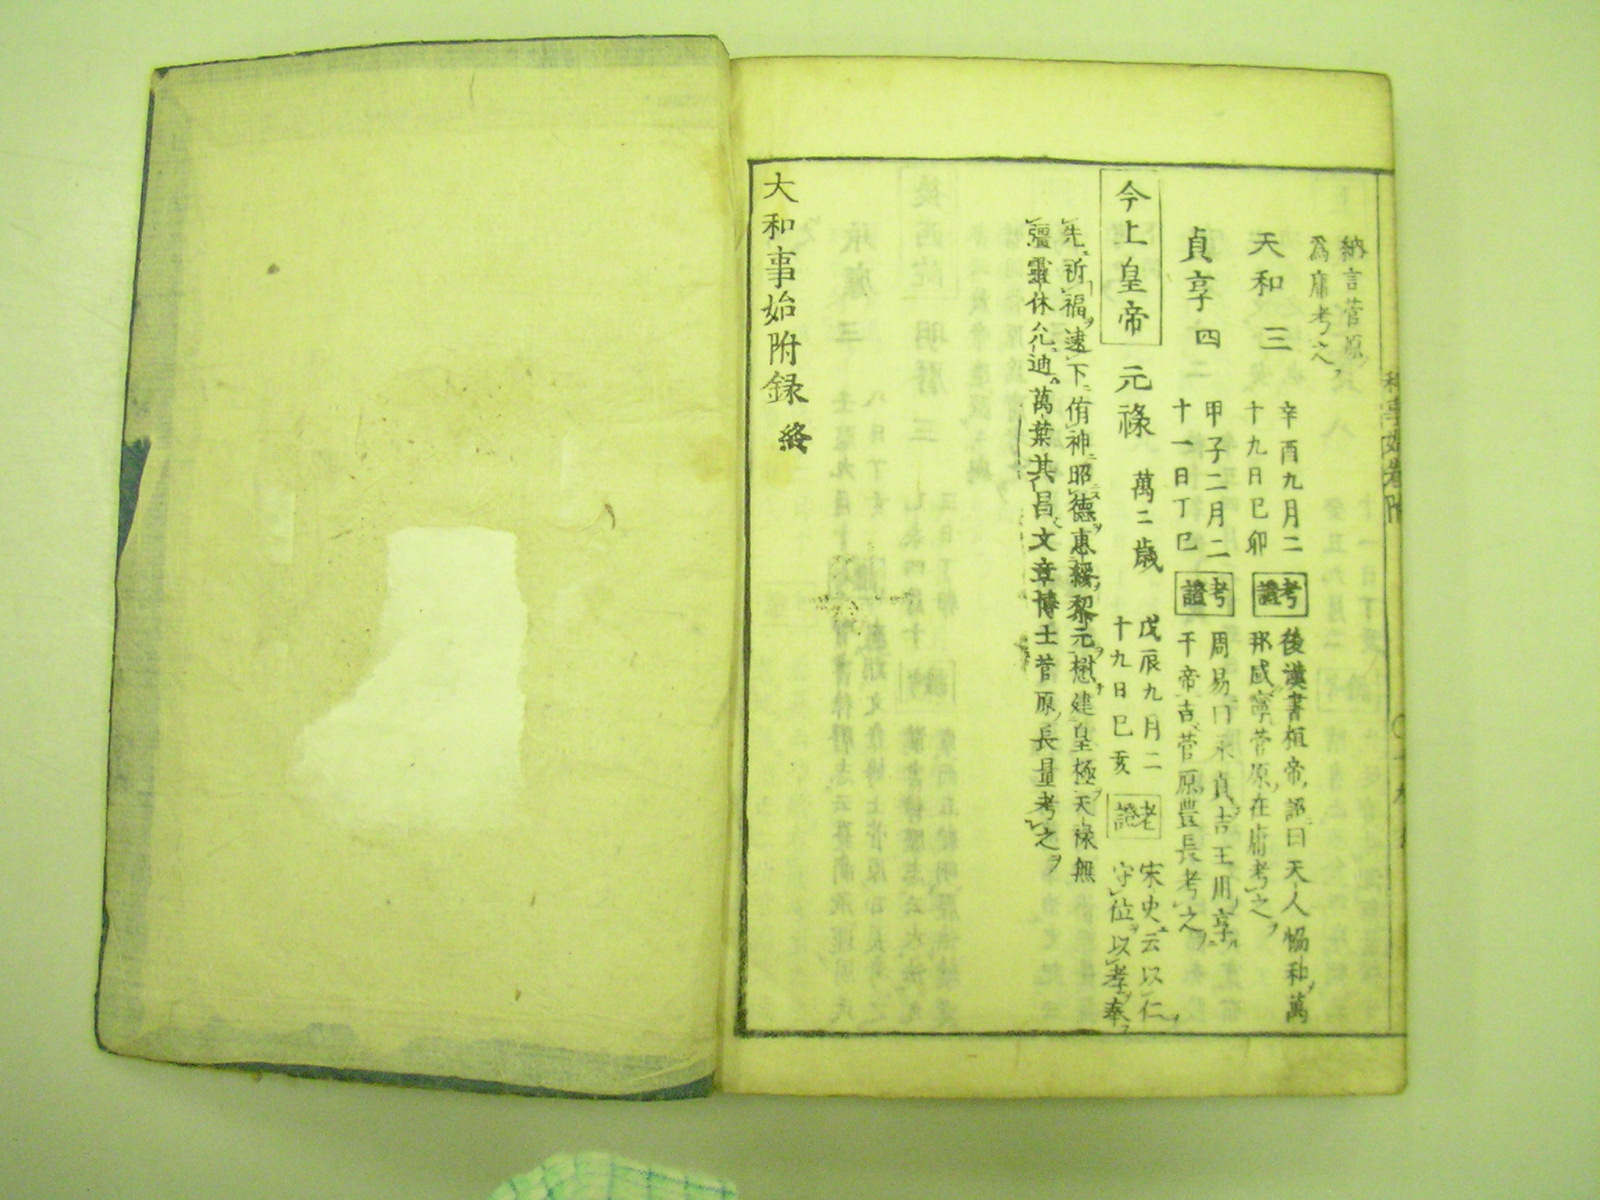 納言菅原
為庸考之
天和 三 辛酉九月二
十九日己卯 考證 後漢書桓帝詔曰天人協和萬
邦咸寧菅原在庸考之
貞享 四 甲子二月二
十一日丁巳 考證 周易曰永貞吉王用享
于帝吉菅原豊長考之
今上皇帝 元祿 萬二歳 戊辰九月二
十九日己亥 考證 宋史云以仁
守位以孝奉
先祈福逮下侑神昭德惠綏黎元懋建皇極天祿無
彊靈休允迪萬葉其昌文章博士菅原長量考之
大和事始附録 終